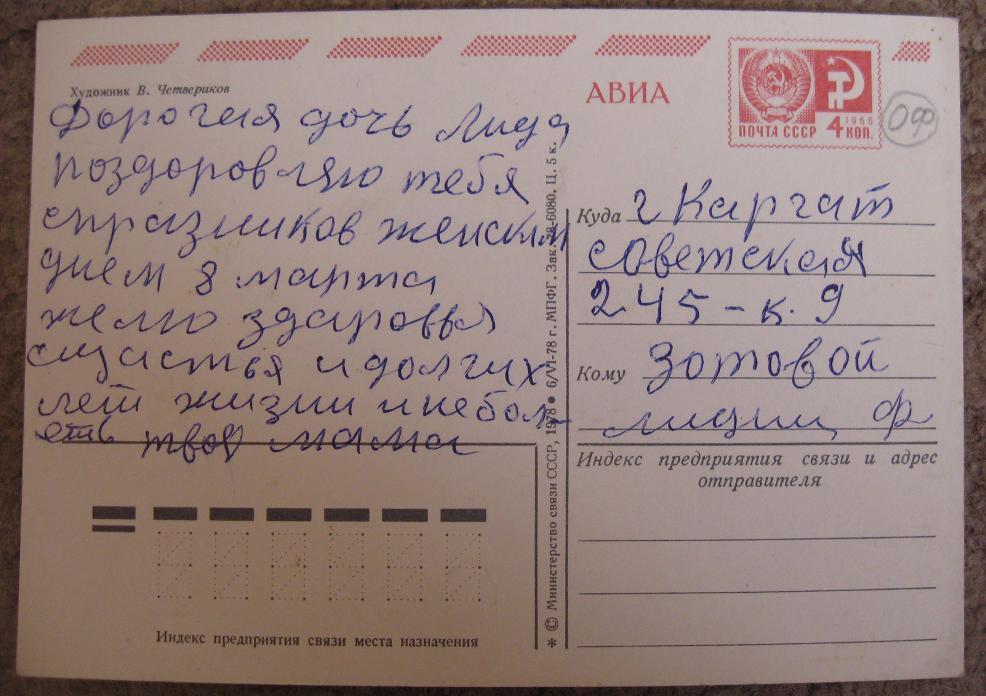 Художник В. Четвериков
АВИА
ПОЧТА СССР
1966
4 КОП.
ОФ
Дорогая дочь Лида
поздоровляю тебя
спразников женским
днем 8 марта
желю здаровья
сщастья и долгих
лет жизни и не бол-
еть твоя мама
Куда г Каргат
советская
245-к. 9
Кому Зотовой
лидии Ф
Индекс предприятия связи и адрес
отправителя
Индекс предприятия связи места назначения
* © Министерство связи СССР, 1978 ● 6/VI-78 г. МПФГ. Зак. 78-6080. Ц. 5 к.